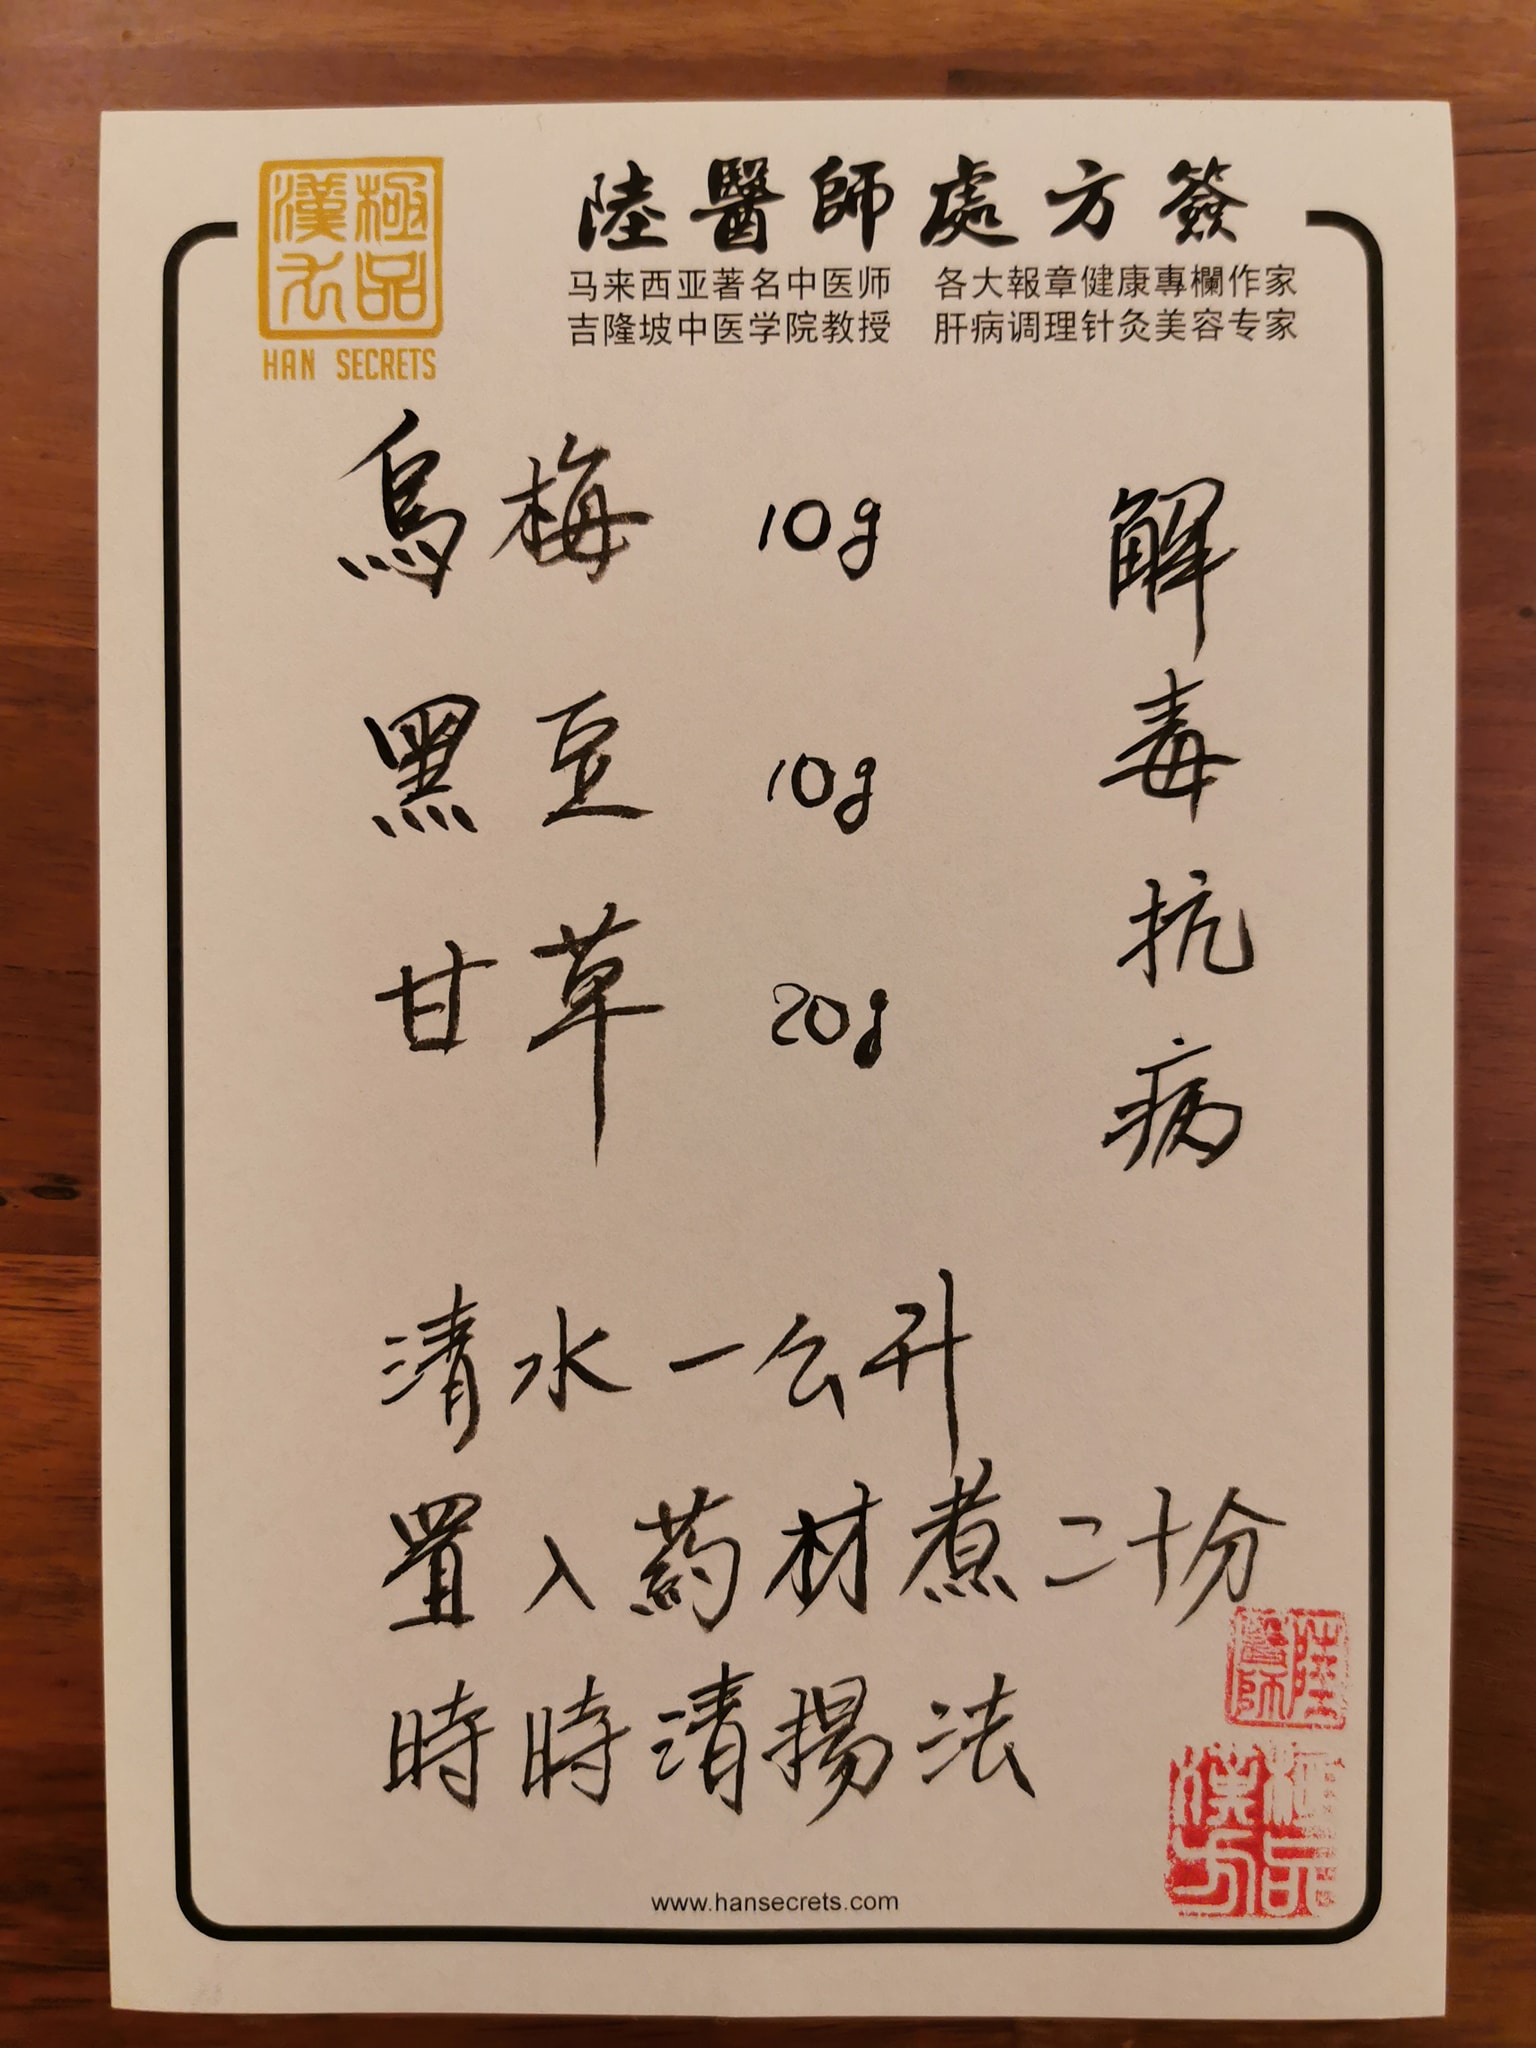 極品漢方
HAN SECRETS
陸醫師處方簽
马来西亚著名中医师 各大報章健康專欄作家
吉隆坡中医学院教授 肝病调理针灸美容专家
烏梅 10g
黑豆 10g
甘草 20g
解毒抗病
清水一公升
置入药材煮二十分
時時清揚法
陸醫師
極品漢方
www.hansecrets.com